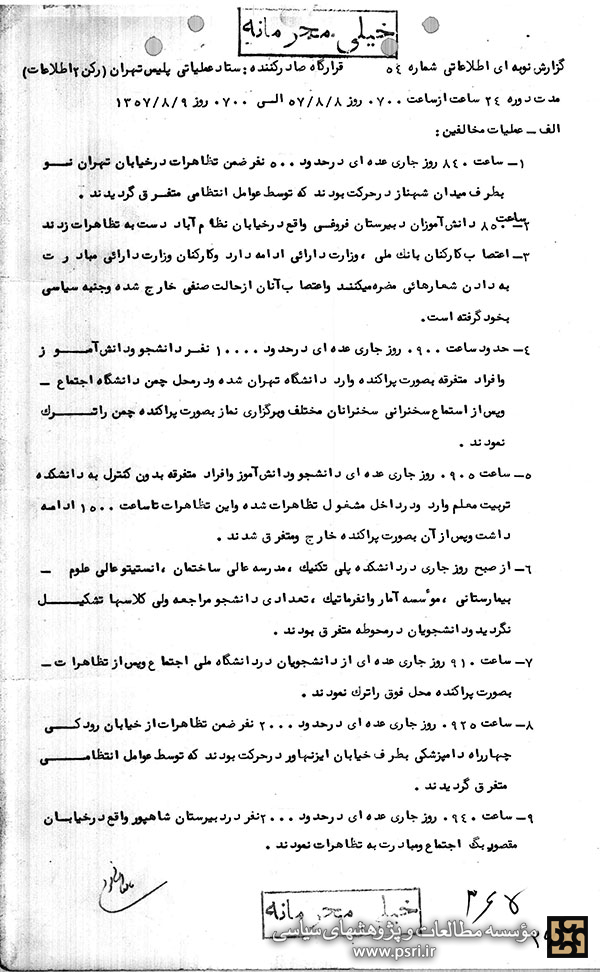 خیلی محرمانه
گزارش نوبه ای اطلاعاتی شماره ٥٤ قرارگاه صادرکننده : ستاد عملیاتی پلیس تهران (رکن ۲ اطلاعات)
مدت دوره ٢٤ ساعت از ساعت ۰۷۰۰ روز ٥٧/٨/٨ الی ۰۷۰۰ روز ١٣٥٧/٨/٩
الف ـ عملیات مخالفین :
١ـ ساعت ٨٤٠ روز جاری عده ای درحدود ٥٠٠ نفر ضمن تظاهرات درخیابان تهران نـو
بطرف میدان شهناز درحرکت بودند که توسط عوامل انتظامی متفرق گردیدند .
٢ـ ساعت ٨٥٠ دانش آموزان دبیرستان فروغی واقع درخیابان نظام آباد دست به تظاهرات زدند
٣ـ اعتصاب کارکنان بانک ملی ، وزارت دارائی ادامه دارد وکارکنان وزارت دارائی مبادرت
به دادن شعارهائی مضره میکنند واعتصاب آنان ازحالت صنفی خارج شده وجنبه سیاسی
بخود گرفته است.
٤ـ حدود ساعت ٠٩٠٠ روز جاری عده ای درحدود ١٠٠٠٠ نفر دانشجو ودانش آمـوز
وافراد متفرقه بصورت پراکنده وارد دانشگاه تهران شده ودرمحل چمن دانشگاه اجتماع ـ
وپس از استماع سخنرانی سخنرانان مختلف وبرگزاری نماز بصورت پراکنده چمن راتـرک
نمودند .
٥ـ ساعت ٠٩٠٥ روز جاری عده ای دانشجو ودانش آموز وافراد متفرقه بدون کنترل به دانشکده
تربیت معلم وارد ودرداخل مشغول تظاهرات شده واین تظاهرات تاساعت ١٥٠٠ ادامه
داشت وپس ازآن بصورت پراکنده خارج ومتفرق شدند .
٦ـ از صبح روز جاری دردانشکده پلی تکنیک ، مدرسه عالی ساختمان ، انستیتو عالی علوم ـ
بیمارستانی ، موٴسسه آمار وانفرماتیک ، تعدادی دانشجو مراجعه ولی کلاسها تشکیـل
نگردید ودانشجویان درمحوطه متفرق بودند .
٧ـ ساعت ٩١٠ روز جاری عده ای از دانشجویان دردانشگاه ملی اجتماع وپس از تظاهرات ـ
بصورت پراکنده محل فوق راترک نمودند .
٨ـ ساعت ٠٩٢٥ روز جاری عده ای درحدود ٢٠٠٠ نفر ضمن تظاهرات از خیابان رودکـی
چهارراه دامپزشکی بطرف خیابان ایزنهاور درحرکت بودند که توسط عوامل انتظامـی
متفرق گردیدند .
٩ـ ساعت ٠٩٤٠ روز جاری عده ای درحدود ٢٠٠٠ نفر دردبیرستان شاهپور واقع درخیابـان
مقصودبگ اجتماع ومبادرت به تظاهرات نمودند .
خیلی محرمانه
موسسه مطالعات و پژوهشهای سیاسی
www.psri.ir